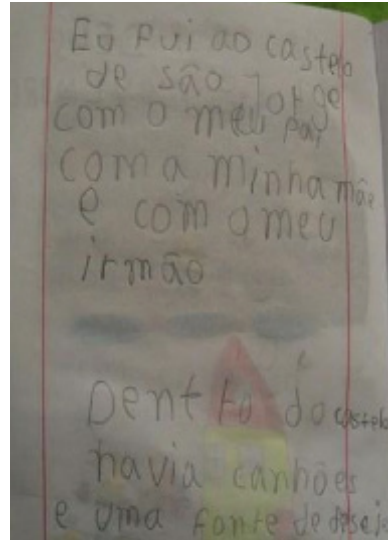 Eu fui ao castelo
de são Jorge
com o meu pai
com a minha mãe
e com o meu
irmão
Dentro do castelo
havia canhões
e uma fonte de